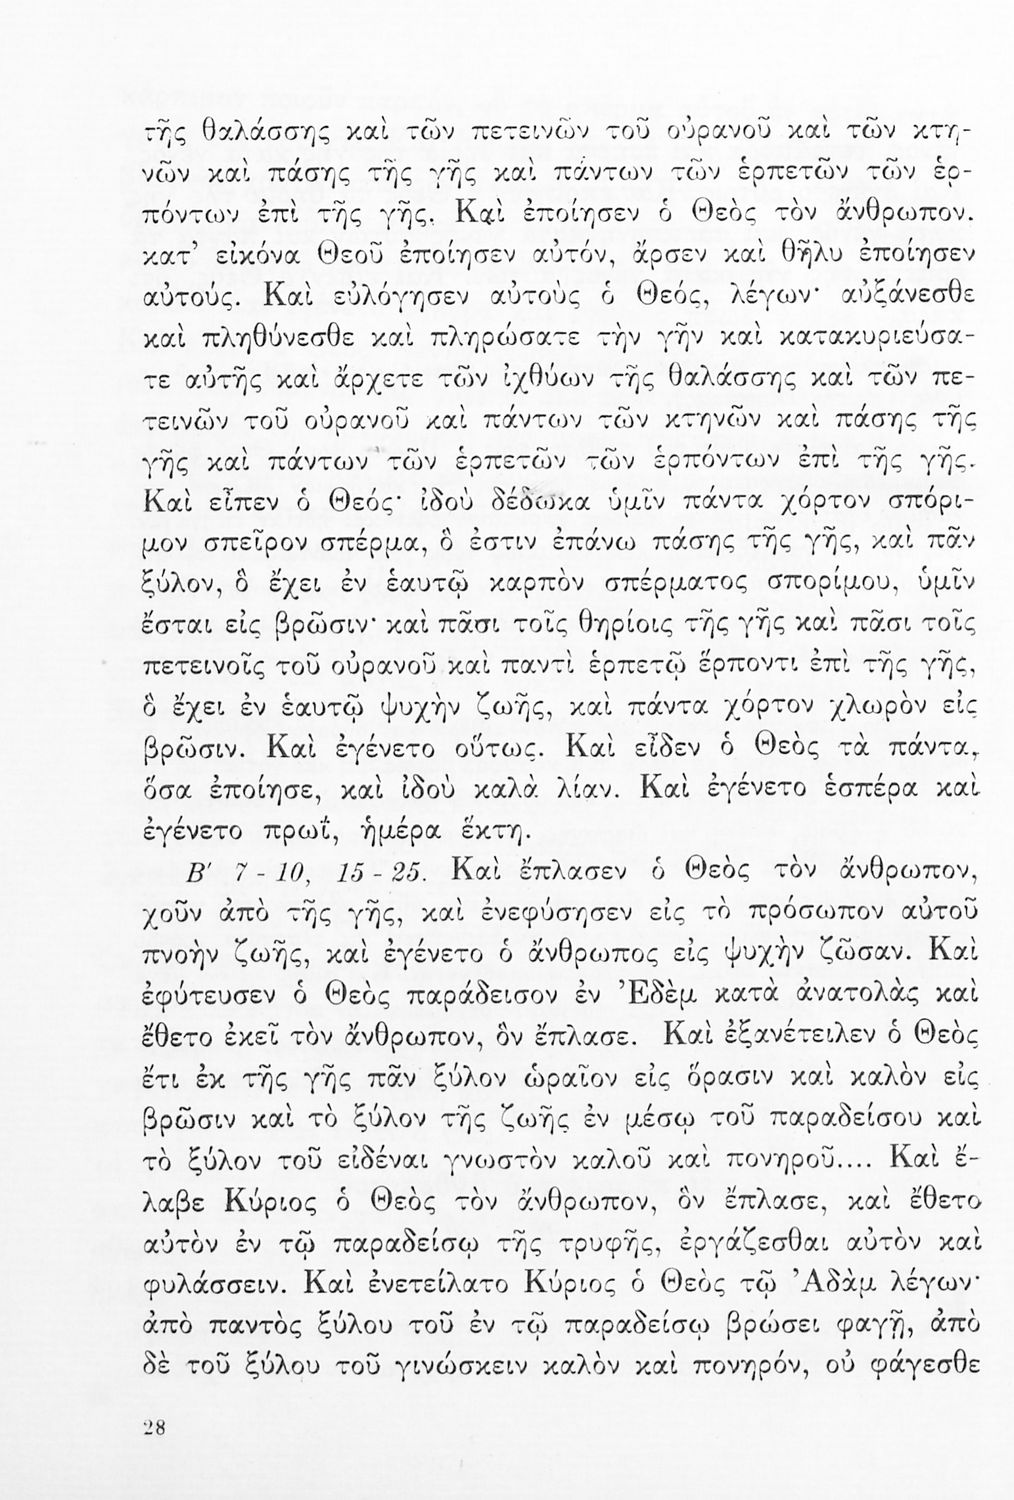 τῆς θαλάσσης καὶ τῶν πετεινῶν τοῦ οὐρανοῦ καὶ τῶν κτη-
νῶν καὶ πάσης τῆς γῆς καὶ πάντων τῶν ἑρπετῶν τῶν ἑρ-
πόντων ἐπὶ τῆς γῆς. Καὶ ἐποίησεν ὁ Θεὸς τὸν ἄνθρωπον.
κατ’ εἰκόνα Θεοῦ ἐποίησεν αὐτόν, ἄρσεν καὶ θῆλυ ἐποίησεν
αὐτούς. Καὶ εὐλόγησεν αὐτοὺς ὁ Θεός, λέγων· αὐξάνεσθε
καὶ πληθύνεσθε καὶ πληρώσατε τὴν γῆν καὶ κατακυριεύσα-
τε αὐτῆς καὶ ἄρχετε τῶν ἰχθύων τῆς θαλάσσης καὶ τῶν πε-
τεινῶν τοῦ οὐρανοῦ καὶ πάντων τῶν κτηνῶν καὶ πάσης τῆς
γῆς καὶ πάντων τῶν ἑρπετῶν τῶν ἑρπόντων ἐπὶ τῆς γῆς.
Καὶ εἶπεν ὁ Θεός· ἰδοὺ δέδωκα ὑμῖν πάντα χόρτον σπόρι-
μον σπεῖρον σπέρμα, ὅ ἐστιν ἐπάνω πάσης τῆς γῆς, καὶ πᾶν
ξύλον, ὃ ἔχει ἐν ἑαυτῷ καρπὸν σπέρματος σπορίμου, ὑμῖν
ἔσται εἰς βρῶσιν· καὶ πᾶσι τοῖς θηρίοις τῆς γῆς καὶ πᾶσι τοῖς
πετεινοῖς τοῦ οὐρανοῦ καὶ παντὶ ἑρπετῷ ἕρποντι ἐπὶ τῆς γῆς,
ὃ ἔχει ἐν ἑαυτῷ ψυχὴν ζωῆς, καὶ πάντα χόρτον χλωρὸν εἰς
βρῶσιν. Καὶ ἐγένετο οὕτως. Καὶ εἶδεν ὁ Θεὸς τὰ πάντα,
ὅσα ἐποίησε, καὶ ἰδοὺ καλὰ λίαν. Καὶ ἐγένετο ἑσπέρα καὶ
ἐγένετο πρωΐ, ἡμέρα ἕκτη.
Β′ 7 - 10, 15 - 25. Καὶ ἔπλασεν ὁ Θεὸς τὸν ἄνθρωπον,
χοῦν ἀπὸ τῆς γῆς, καὶ ἐνεφύσησεν εἰς τὸ πρόσωπον αὐτοῦ
πνοὴν ζωῆς, καὶ ἐγένετο ὁ ἄνθρωπος εἰς ψυχὴν ζῶσαν. Καὶ
ἐφύτευσεν ὁ Θεὸς παράδεισον ἐν Ἐδὲμ κατὰ ἀνατολὰς καὶ
ἔθετο ἐκεῖ τὸν ἄνθρωπον, ὃν ἔπλασε. Καὶ ἐξανέτειλεν ὁ Θεὸς
ἔτι ἐκ τῆς γῆς πᾶν ξύλον ὡραῖον εἰς ὅρασιν καὶ καλὸν εἰς
βρῶσιν καὶ τὸ ξύλον τῆς ζωῆς ἐν μέσῳ τοῦ παραδείσου καὶ
τὸ ξύλον τοῦ εἰδέναι γνωστὸν καλοῦ καὶ πονηροῦ.... Καὶ ἔ-
λαβε Κύριος ὁ Θεὸς τὸν ἄνθρωπον, ὃν ἔπλασε, καὶ ἔθετο
αὐτὸν ἐν τῷ παραδείσῳ τῆς τρυφῆς, ἐργάζεσθαι αὐτὸν καὶ
φυλάσσειν. Καὶ ἐνετείλατο Κύριος ὁ Θεὸς τῷ Ἀδὰμ λέγων·
ἀπὸ παντὸς ξύλου τοῦ ἐν τῷ παραδείσῳ βρώσει φαγῇ, ἀπὸ
δὲ τοῦ ξύλου τοῦ γινώσκειν καλὸν καὶ πονηρόν, οὐ φάγεσθε
28